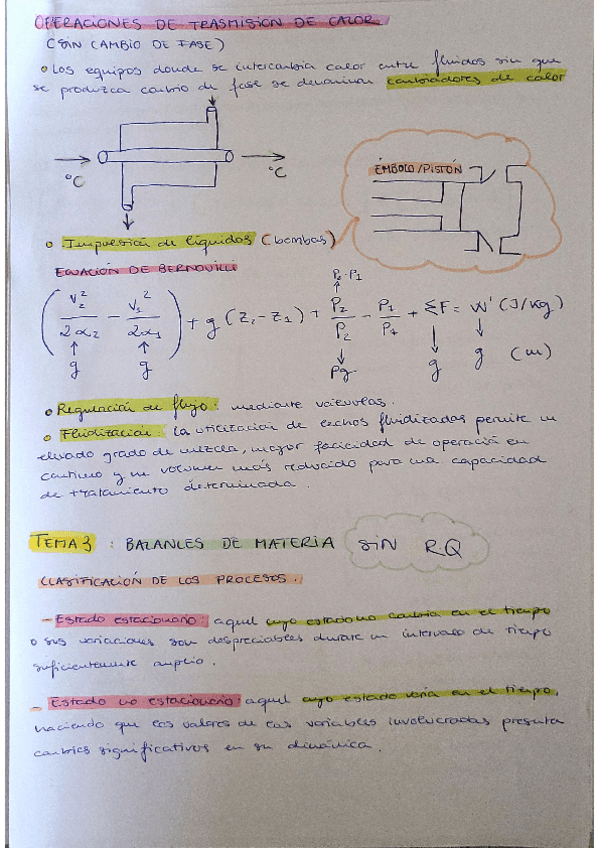 OPERACIONES DE TRASMISION DE CALOR
(SIN CAMBIO DE FASE)
• Los equipos donde se intercambia calor entre fluidos sin que
se produzca cambio de fase se denominan cambiadores de calor
°C
°C
ÉMBOLO/PISTÓN
• Impulsión de líquidos (bombas)
ECUACIÓN DE BERNOUILLI
P2-P1
(V2²/2α2 - V1²/2α1) + g (Z2-Z1) + P2/P2 - P1/P1 + ΣF = W' (J/Kg)
g g Pg g g (m)
• Regulación de flujo: mediante válvulas.
• Fluidización: la utilización de lechos fluidizados permite un
elevado grado de mezcla, mayor facilidad de operación en
continuo y un volumen más reducido para una capacidad
de tratamiento determinada.
TEMA 3 : BALANCES DE MATERIA SIN RQ
CLASIFICACIÓN DE LOS PROCESOS.
- Estado estacionario: aquel cuyo estado no cambia en el tiempo
o sus variaciones son despreciables durante un intervalo de tiempo
suficientemente amplio.
- Estado no estacionario: aquel cuyo estado varía en el tiempo,
haciendo que los valores de las variables involucradas presenta
cambios significativos en su dinámica.